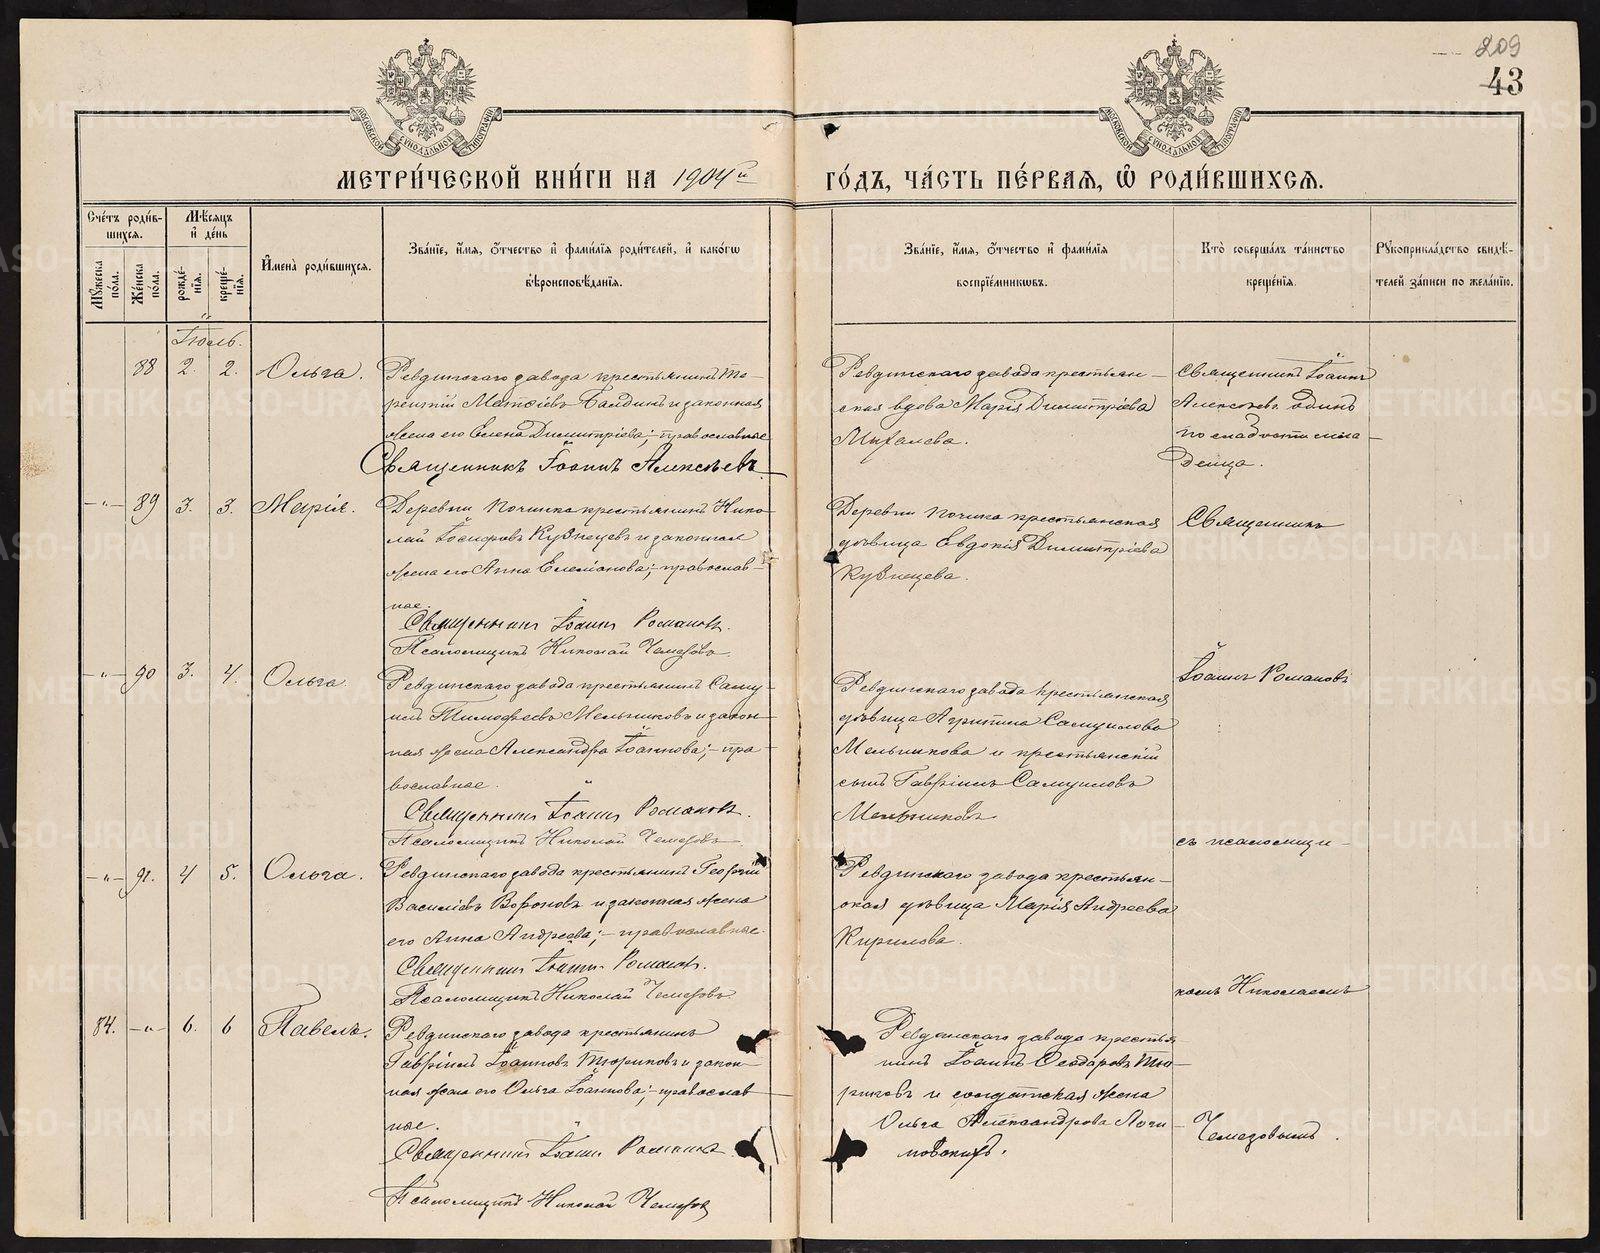 209
43
МОСКОВСКОЙ СѴНОДАЛЬНОЙ ТИПОГРАФІИ
МОСКОВСКОЙ СѴНОДАЛЬНОЙ ТИПОГРАФІИ
МЕТРИ́ЧЕСКОЙ КНИ́ГИ НА 1904й ГО́ДЪ, ЧА́СТЬ ПЕ́РВАѦ, Ѡ РОДИ́ВШИХСѦ.
Сче́тъ роди́в-
шихсѧ.
Мꙋ́жеска по́ла.
Же́нска по́ла.
Мѣ́сѧцъ
и҆ де́нь
рожде́-
нїѧ.
креще́-
нїѧ.
И҆мена̀ роди́вшихсѧ.
Зва́нїе, и҆́мѧ, ѻ҆́тчество и҆ фами́лїѧ роди́телей, и҆ како́гѡ
вѣроисповѣ́данїѧ.
Зва́нїе, и҆́мѧ, ѻ҆́тчество и҆ фами́лїѧ
воспрїе́мникѡвъ.
Кто̀ соверша́лъ та́инство
креще́нїѧ.
Рꙋкоприкла́дство свидѣ́-
телей за́писи по жела́нїю.
Іюль.
88 2. 2. Ольга.
Ревдинскаго завода крестьянинъ Те-
рентій Матѳіевъ Балдинъ и законная
жена его Елена Димитріева;- православные
Священникъ Іоаннъ Алексѣевъ
Ревдинскаго завода крестьян-
ская вдова Марія Димитріева
Михалева.
Священникъ Іоаннъ
Алексѣевъ одинъ
по слабости мла-
денца.
-"- 89 3. 3. Марія.
Деревни Починка крестьянинъ Нико-
лай Іосифовъ Кузнецовъ и законная
жена его Анна; - православ-
ные.
Священникъ Іоаннъ Романовъ.
Псаломщикъ Николай Чемезовъ.
Деревни Починка крестьянская
дѣвица Евдокія Димитріева
Кузнецова.
Священникъ
-"- 90 3. 4. Ольга.
Ревдинскаго завода крестьянинъ Саму-
илъ Тимофеевъ Мельниковъ и закон-
ная жена Александра Іоаннова; - пра-
вославные.
Священникъ Іоаннъ Романовъ.
Псаломщикъ Николай Чемезовъ.
Ревдинскаго завода крестьянская
дѣвица Самуилова
Мельникова и крестьянскій
сынъ Гавріилъ Самуиловъ
Мельниковъ
Іоаннъ Романовъ
съ псаломщи-
-"- 91. 4 5. Ольга.
Ревдинскаго завода крестьянинъ Георгій
Василіевъ Вороновъ и законная жена
его Анна Андреева; - православные.
Священникъ Іоаннъ Романовъ.
Псаломщикъ Николай Чемезовъ.
Ревдинскаго завода крестьян-
ская дѣвица Марія Андреева
Кирилова.
комъ Николаемъ
84. -"- 6. 6 Павелъ.
Ревдинскаго завода крестьянинъ
Гавріилъ Іоанновъ Тюриковъ и закон-
ная жена его Ольга Іоаннова; - православ-
ные.
Священникъ Іоаннъ Романовъ
Псаломщикъ Николай Чемезовъ
Ревдинскаго завода крестья-
нинъ Іоаннъ Ѳеодоровъ Тю-
риковъ и солдатская жена
Ольга Александрова
Чемезовымъ.
METRIKI.GASO-URAL.RU